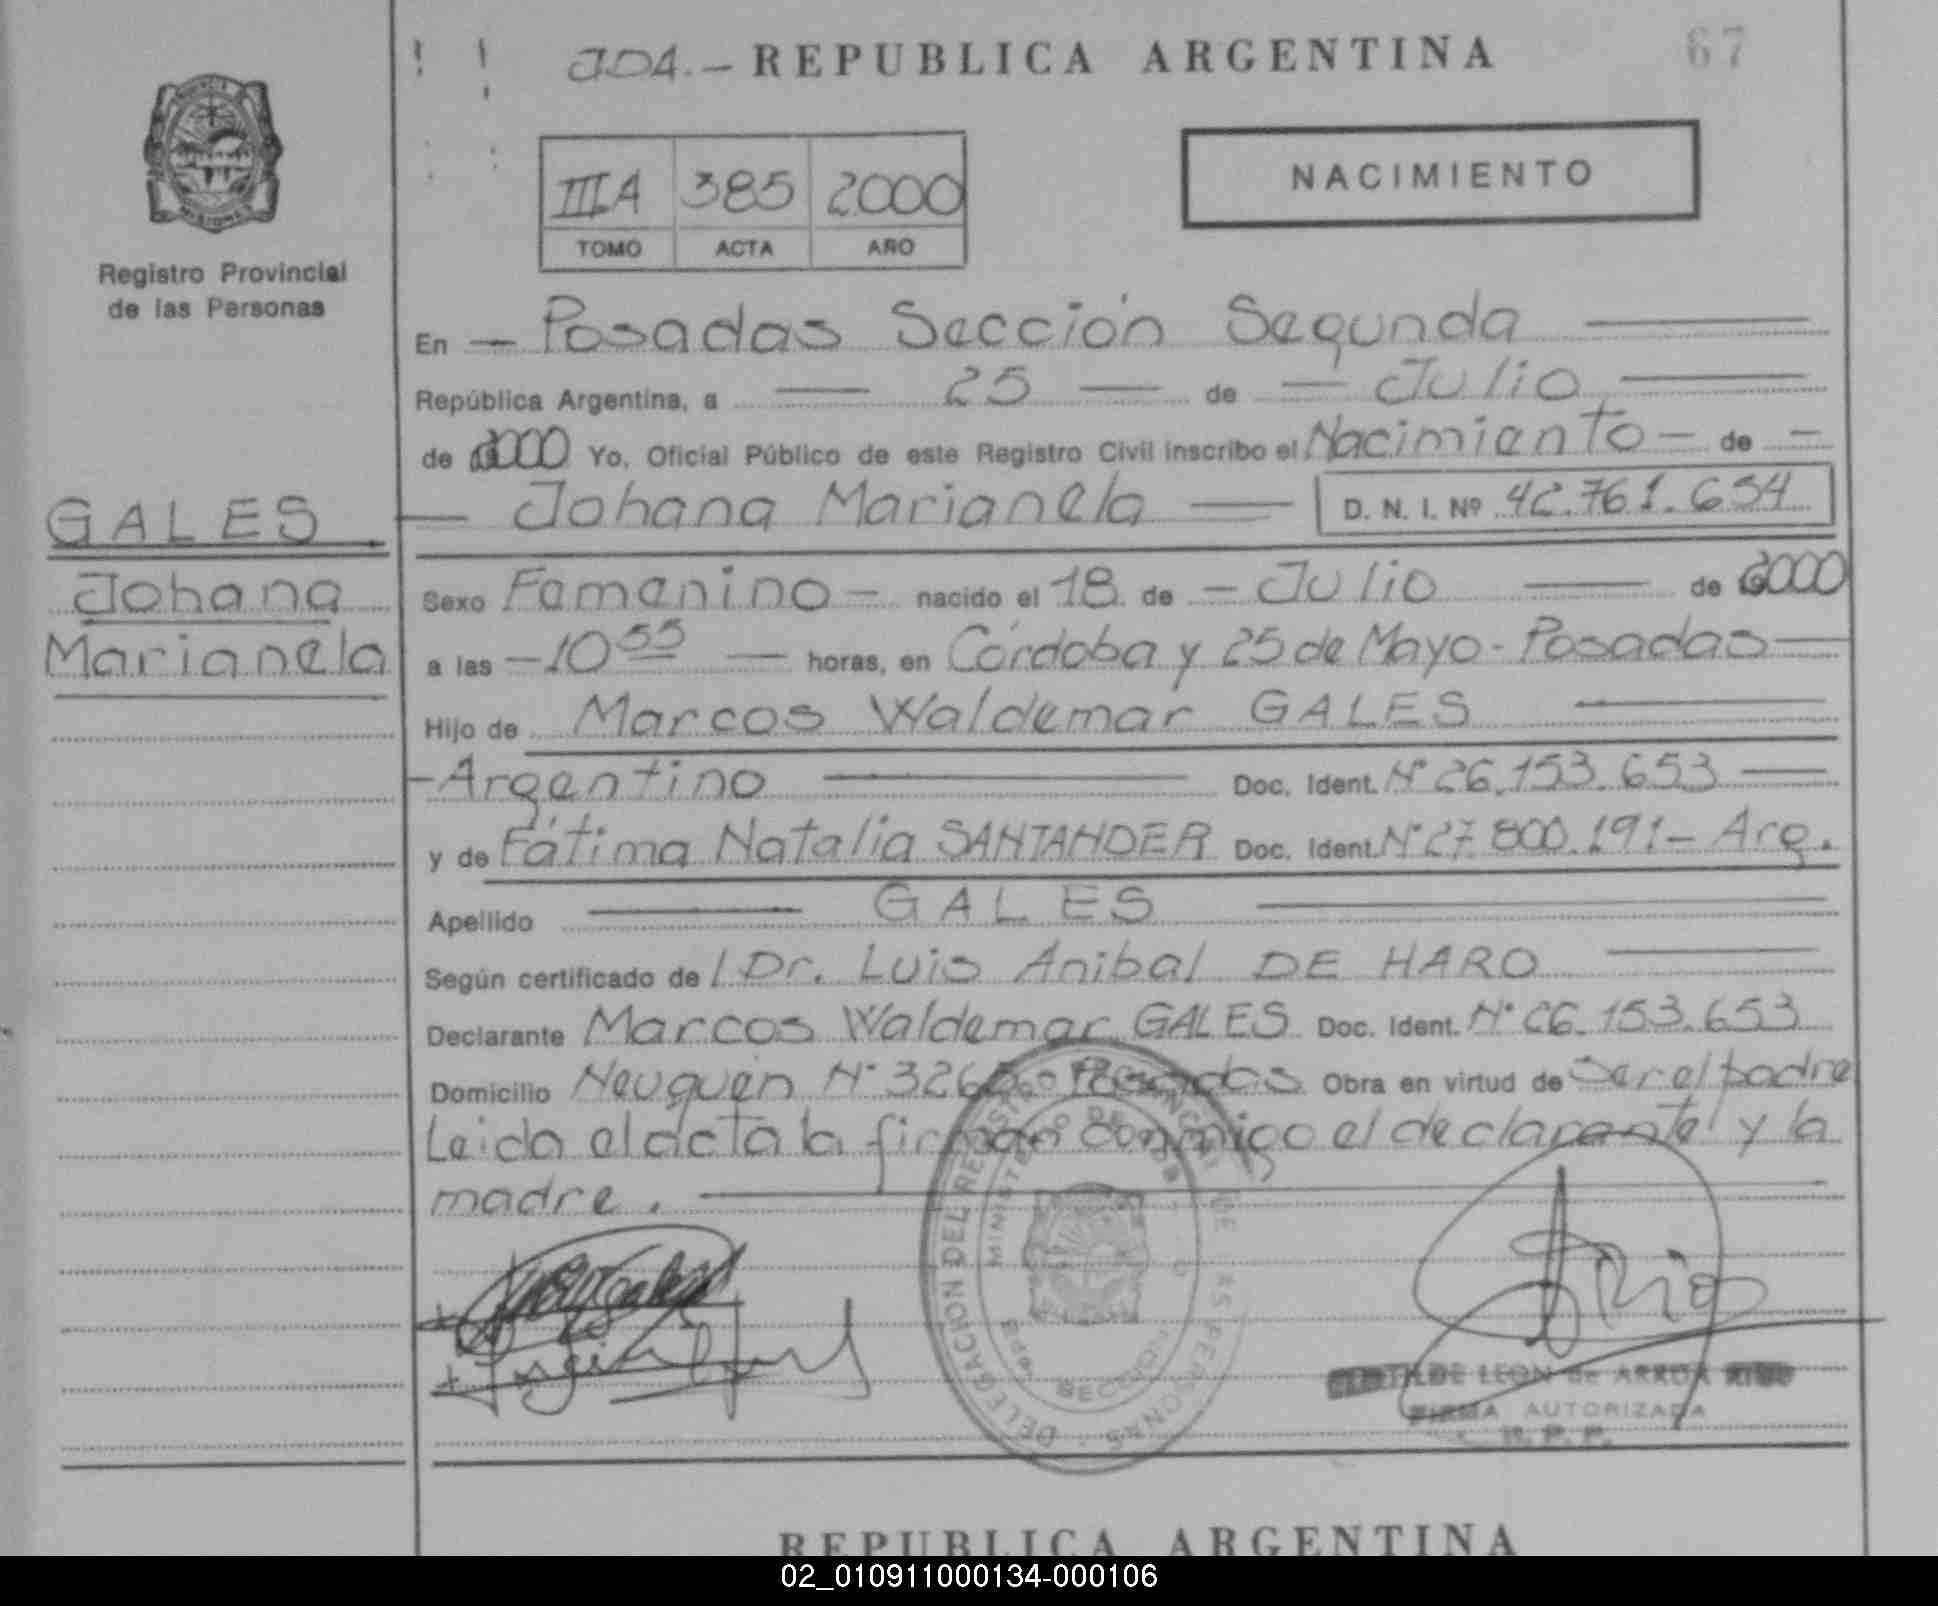 J04.- REPUBLICA ARGENTINA 67
IIIA 385 2000
TOMO ACTA AÑO
NACIMIENTO
Registro Provincial
de las Personas
En - Posadas Sección Segunda
República Argentina, a 25 de Julio
de 2000 Yo, Oficial Público de este Registro Civil inscribo el Nacimiento - de -
GALES
Johana
Marianela
Johana Marianela D. N. I. Nº 42.761.654
Sexo Femenino - nacido el 18 de - Julio de 2000
a las - 10 55 horas, en Córdoba y 25 de Mayo - Posadas
Hijo de Marcos Waldemar GALES
- Argentino Doc. Ident. Nº 26.153.653
y de Fátima Natalia SANTANDER Doc. Ident. Nº 27.800.191 - Arg.
Apellido GALES
Según certificado de / Dr. Luis Anibal DE HARO
Declarante Marcos Waldemar GALES Doc. Ident. Nº 26.153.653
Domicilio Neuquen Nº Posadas Obra en virtud de Ser el padre
Leida el acta la firman conmigo el declarante y la
madre.
DELEGACION DEL REGISTRO PROVINCIAL DE LAS PERSONAS
MINISTERIO DE
SECCION
LEON de ARRUA
FIRMA AUTORIZADA
R. P. P.
REPUBLICA ARGENTINA
02_010911000134-000106